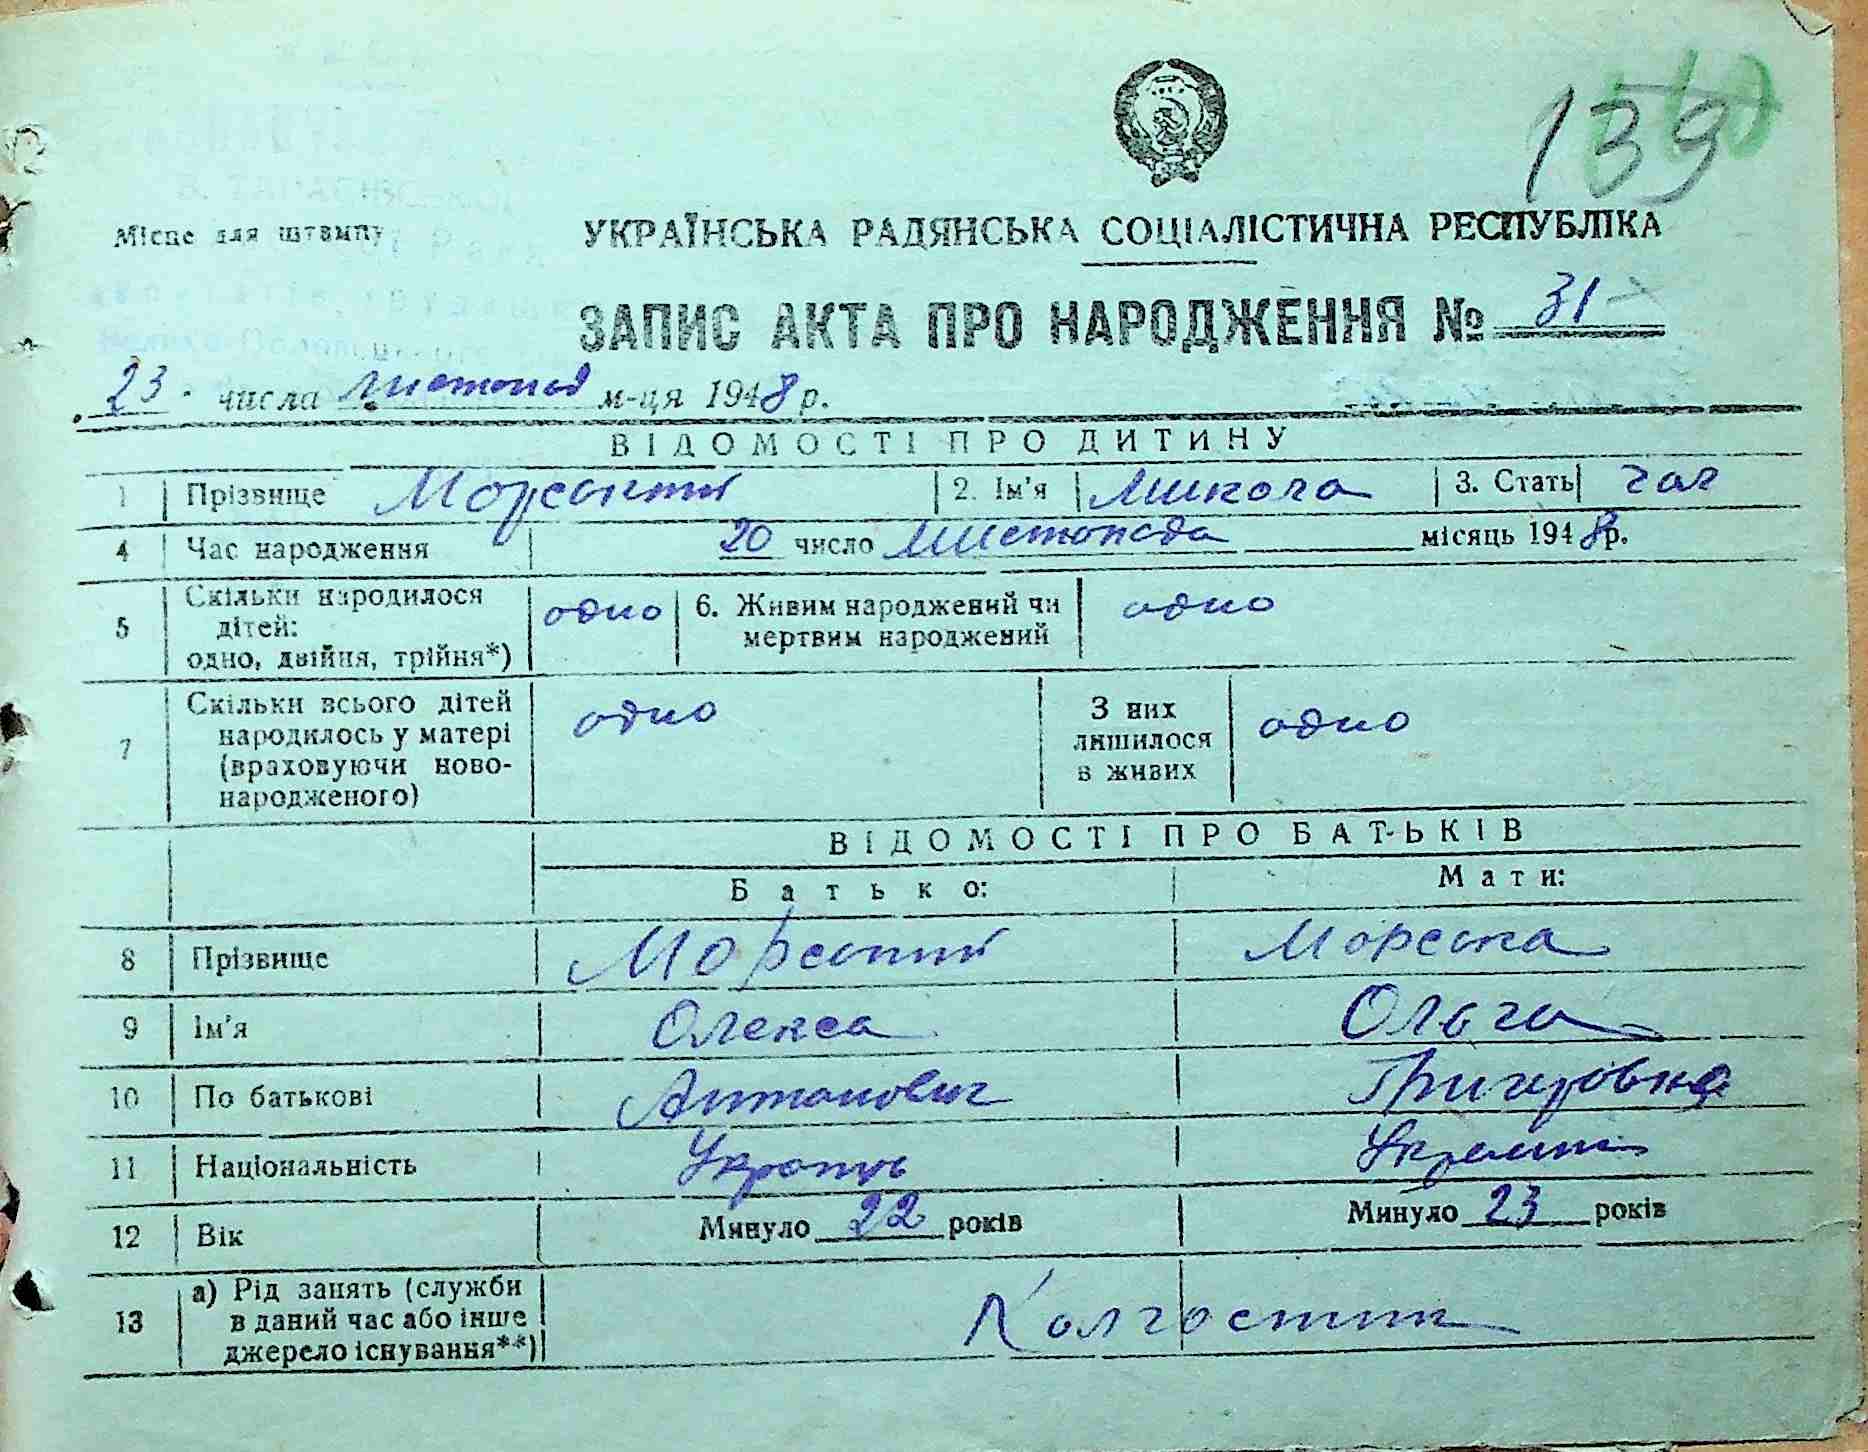 139
Місце для штампу
УКРАЇНСЬКА РАДЯНСЬКА СОЦІАЛІСТИЧНА РЕСПУБЛІКА
ЗАПИС АКТА ПРО НАРОДЖЕННЯ № 31
23 числа листопад м-ця 1948 р.
ВІДОМОСТІ ПРО ДИТИНУ
1 Прізвище Морський 2. Ім'я Микола 3. Стать чол
4 Час народження 20 число листопада місяць 1948 р.
5 Скільки народилося дітей: одно, двійня, трійня*) одно 6. Живим народжений чи мертвим народжений одно
7 Скільки всього дітей народилось у матері (враховуючи ново-народженого) одно З них лишилося в живих одно
ВІДОМОСТІ ПРО БАТЬКІВ
Батько: Мати:
8 Прізвище Морський Морська
9 Ім'я Олекса Ольга
10 По батькові Антонович Григоровна
11 Національність
12 Вік Минуло 22 років Минуло 23 років
13 а) Рід занять (служби в даний час або інше джерело існування**) Колгоспник